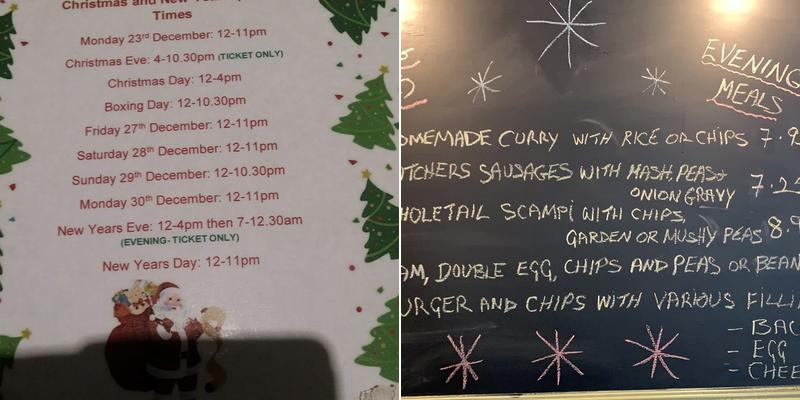 Christmas and New
Times
Monday 23rd December: 12-11pm
Christmas Eve: 4-10.30pm (TICKET ONLY)
Christmas Day: 12-4pm
Boxing Day: 12-10.30pm
Friday 27th December: 12-11pm
Saturday 28th December: 12-11pm
Sunday 29th December: 12-10.30pm
Monday 30th December: 12-11pm
New Years Eve: 12-4pm then 7-12.30am
(EVENING- TICKET ONLY)
New Years Day: 12-11pm
EVENING
MEALS
OMEMADE CURRY WITH RICE OR CHIPS 7.9
TCHERS SAUSAGES WITH MASH, PEAS +
ONION GRAVY 7.2
HOLETAIL SCAMPI WITH CHIPS,
GARDEN OR MUSHY PEAS 8.9
AM, DOUBLE EGG, CHIPS AND PEAS OR BEAN
URGER AND CHIPS WITH VARIOUS FILLI
- BAC
- EGG
- CHEE